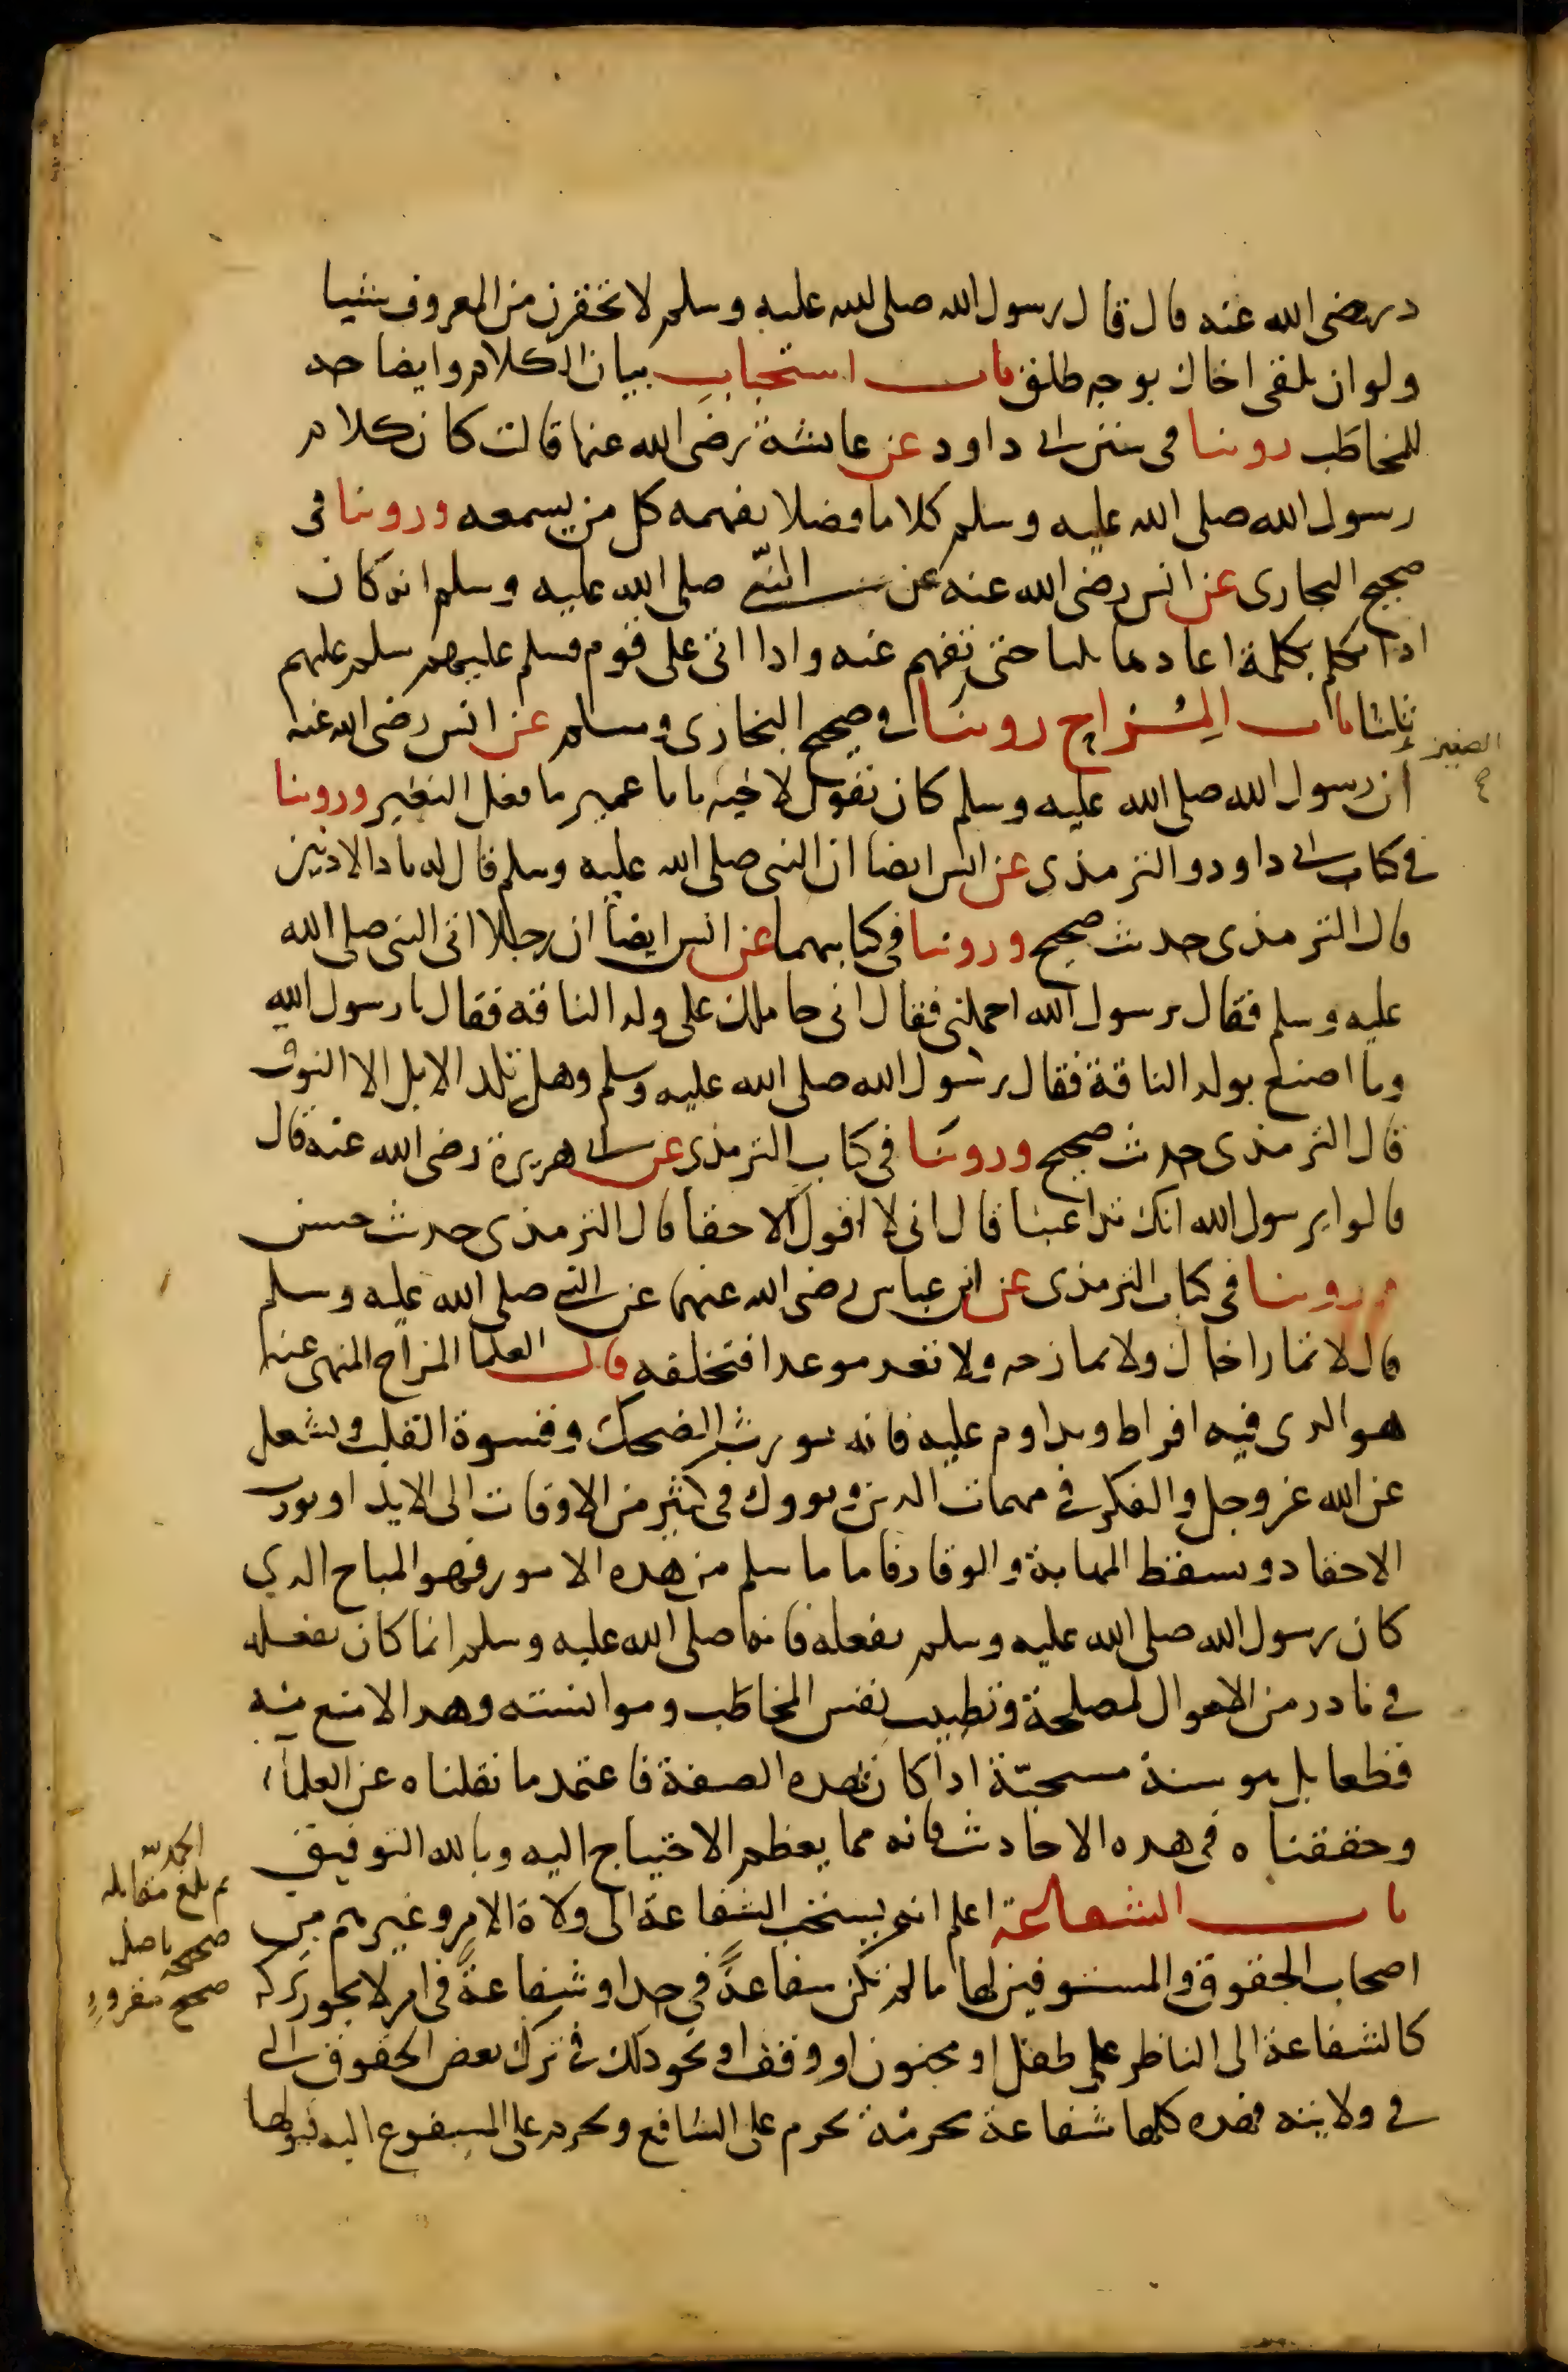 در رضى الله عنه قال قال رسول الله صلى الله عليه وسلم لا تحقرن من المعروف شيا
ولو ان تلقى اخاك بوجه طلق باب استحباب بيان الكلام وايضاحه
للمخاطب روينا فى سنن ابى داود عن عائشة رضى الله عنها قالت كان كلام
رسول الله صلى الله عليه وسلم كلاما فصلا يفهمه كل من يسمعه وروينا فى
صحيح البخارى عن انس رضى الله عنه عن النبى صلى الله عليه وسلم انه كان
اذا تكلم بكلمة اعادها ثلثا حتى تفهم عنه واذا اتى على قوم فسلم عليهم سلم عليهم
ثلثا باب المزاح روينا فى صحيح البخارى ومسلم عن انس رضى الله عنه
الصغير
ان رسول الله صلى الله عليه وسلم كان يقول لاخيه يابا عمير ما فعل النغير وروينا
فى كتاب ابى داود والترمذى عن انس ايضا ان النبى صلى الله عليه وسلم قال له ياذا الاذنين
قال الترمذى حديث صحيح وروينا فى كتابيهما عن انس ايضا ان رجلا اتى النبى صلى الله
عليه وسلم فقال يرسول الله احملنى فقال انى حاملك على ولد الناقة فقال يا رسول الله
وما اصنع بولد الناقة فقال رسول الله صلى الله عليه وسلم وهل تلد الابل الا النوق
قال الترمذى حديث صحيح وروينا فى كتاب الترمذى عن ابى هريرة رضى الله عنه قال
قالوا يرسول الله انك تداعبنا قال انى لا اقول الا حقا قال الترمذى حديث حسن
وروينا فى كتاب الترمذى عن ابن عباس رضى الله عنهما عن النبى صلى الله عليه وسلم
قال لا تمار اخاك ولا تمازحه ولا تعد موعدا فتخلفه قال العلما المزاح المنهى عنه
هو الذى فيه افراط ويداوم عليه فانه يورث الضحك وقسوة القلب ويشغل
عن الله عز وجل والفكر فى مهمات الدين ويوول فى كثير من الاوقات الى الايذا ويورث
الاحقاد ويسقط المهابة والوقار فاما ما سلم من هذه الامور فهو المباح الذى
كان رسول الله صلى الله عليه وسلم يفعله فانه صلى الله عليه وسلم انما كان يفعله
فى نادر من الاحوال لمصلحة وتطييب نفس المخاطب وموانسته وهذا لا منع منه
قطعا بل هو سنة مستحبة اذا كان بهذه الصفة فاعتمد ما نقلناه عن العلماء
وحققناه فى هذه الاحاديث فانه مما يعظم الاحتياج اليه وبالله التوفيق
باب الشفاعة اعلم انه يستحب الشفاعة الى ولاة الامر وغيرهم من
اصحاب الحقوق والمستوفين لها ما لم تكن شفاعة فى حد او شفاعة فى امر لا يجوز تركه
كالشفاعة الى الناظر على طفل او مجنون او وقف او نحو ذلك فى ترك بعض الحقوق التى
فى ولايته فهذه كلها شفاعة محرمة تحرم على الشافع ويحرم على المشفوع اليه قبولها
الحمد لله
ثم بلغ مقابله
صحيحة باصل
صحيح مقروء